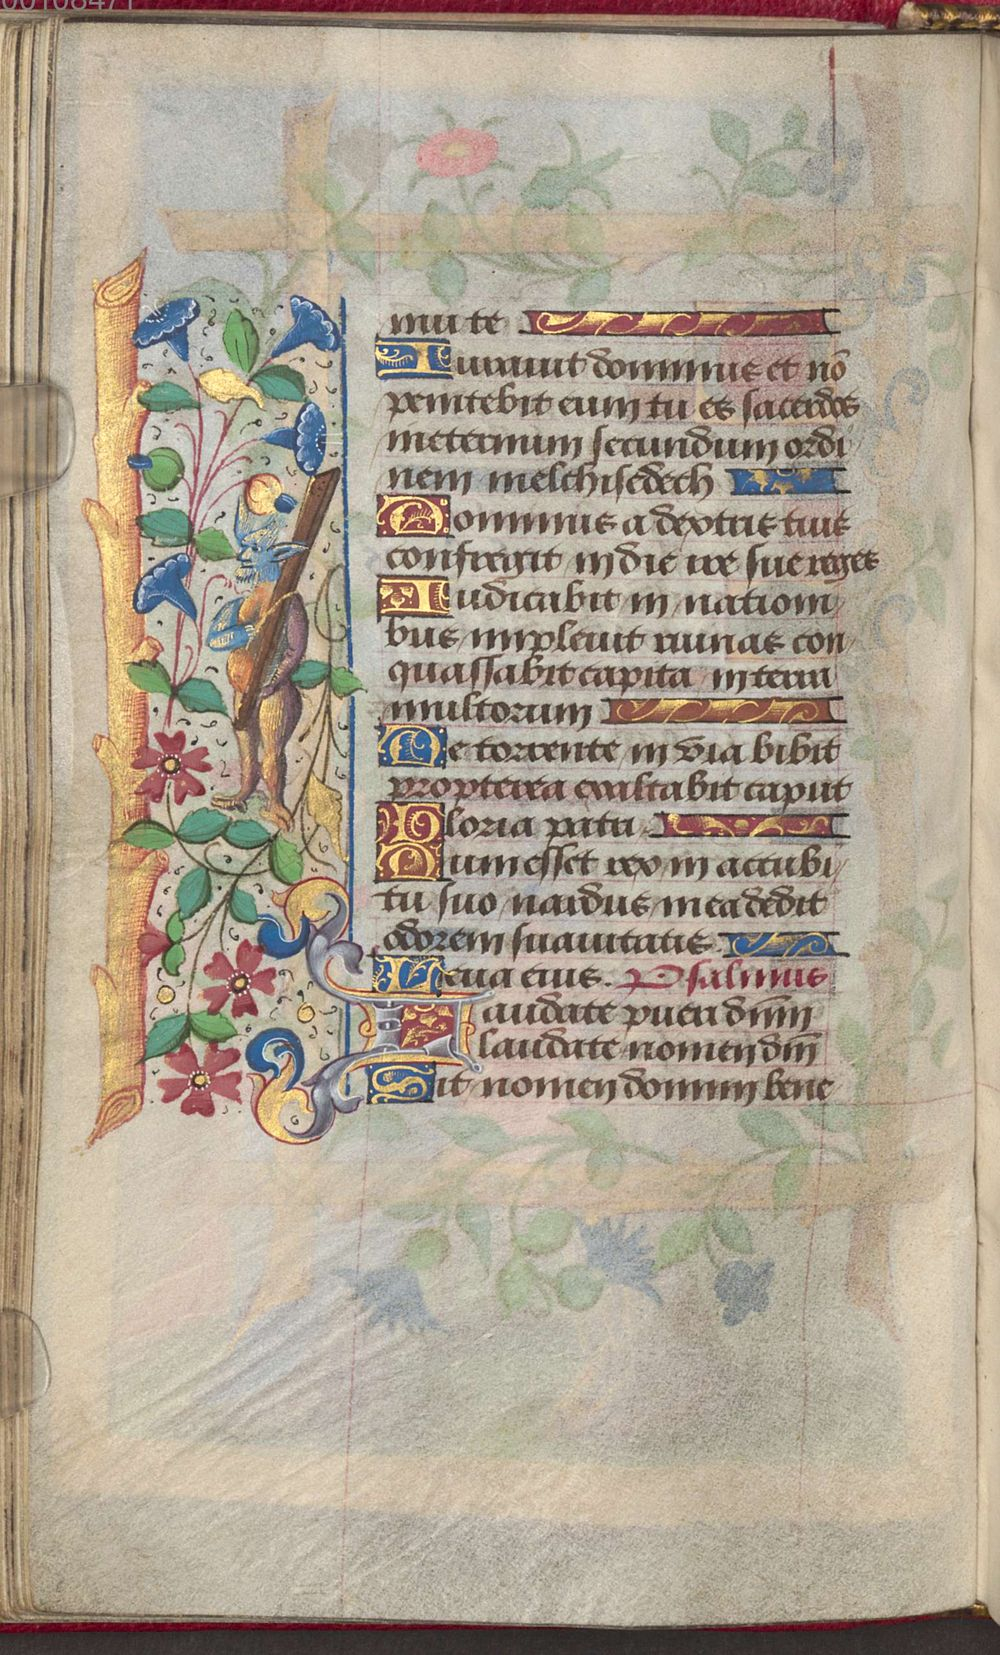 nui te
Iurauit dominus et nō
penitebit eum tu es sacerdos
in eternum secundum ordi
nem melchisedech
Dominus a dextris tuis
confregit in die ire sue reges
Iudicabit in nationi
bus impleuit ruinas con
quassabit capita in terra
multorum
De torrente in via bibit
propterea exaltabit caput
Gloria patri
Dum esset rex in accubi
tu suo nardus mea dedit
odorem suauitatis
Leua eius. Psalmus
Laudate pueri dn̄m
laudate nomen dn̄i
Sit nomen domini bene